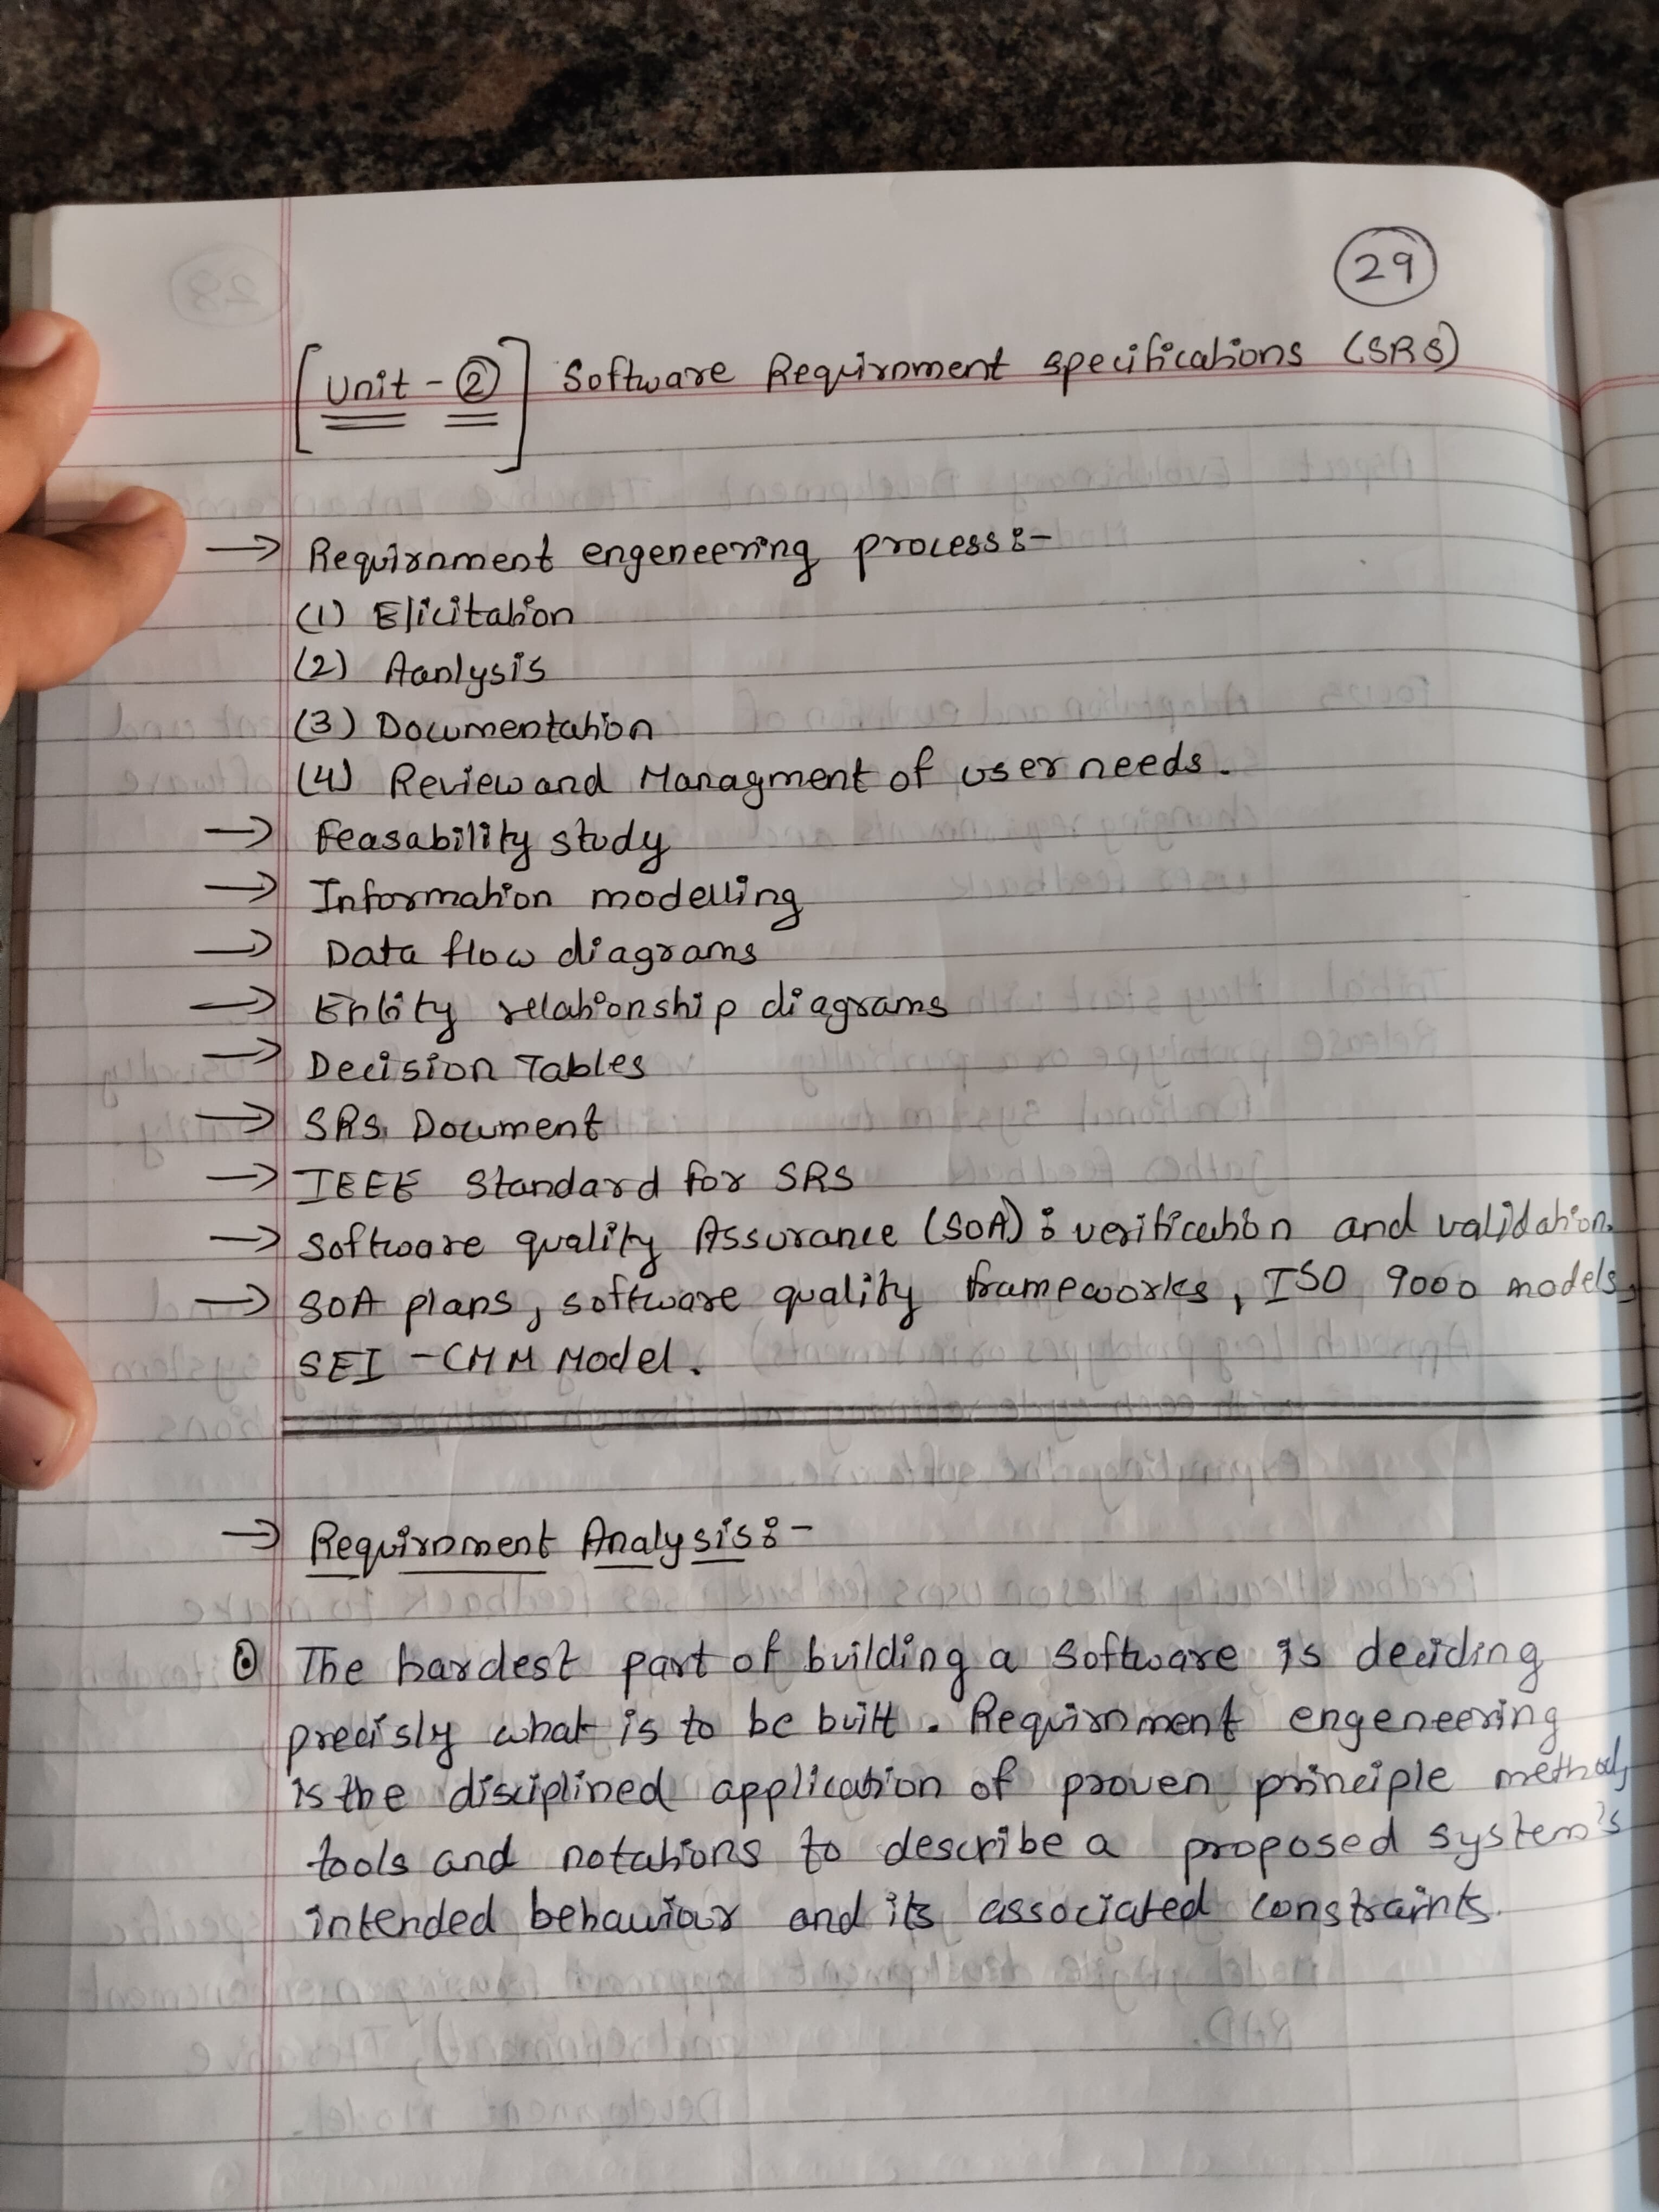 29
[Unit - ②] Software Requirnment specifications (SRS)
→ Requirnment engeneering process:-
(1) Elicitation
(2) Aanlysis
(3) Documentation
(4) Review and Managment of user needs.
→ Feasability study
→ Information modelling
→ Data flow diagrams
→ Entity relationship diagrams
→ Decision Tables
→ SRS Document
→ IEEE Standard for SRS
→ Software quality Assurance (SOA): verification and validation.
→ SOA plans, software quality frameworks, ISO 9000 models,
SEI - CMM Model.
→ Requirnment Analysis:-
⊙ The hardest part of building a software is deciding
precisly what is to be built. Requirnment engeneering
is the disciplined application of proven principle methods,
tools and notations to describe a proposed system's
intended behaviour and its associated constraints.